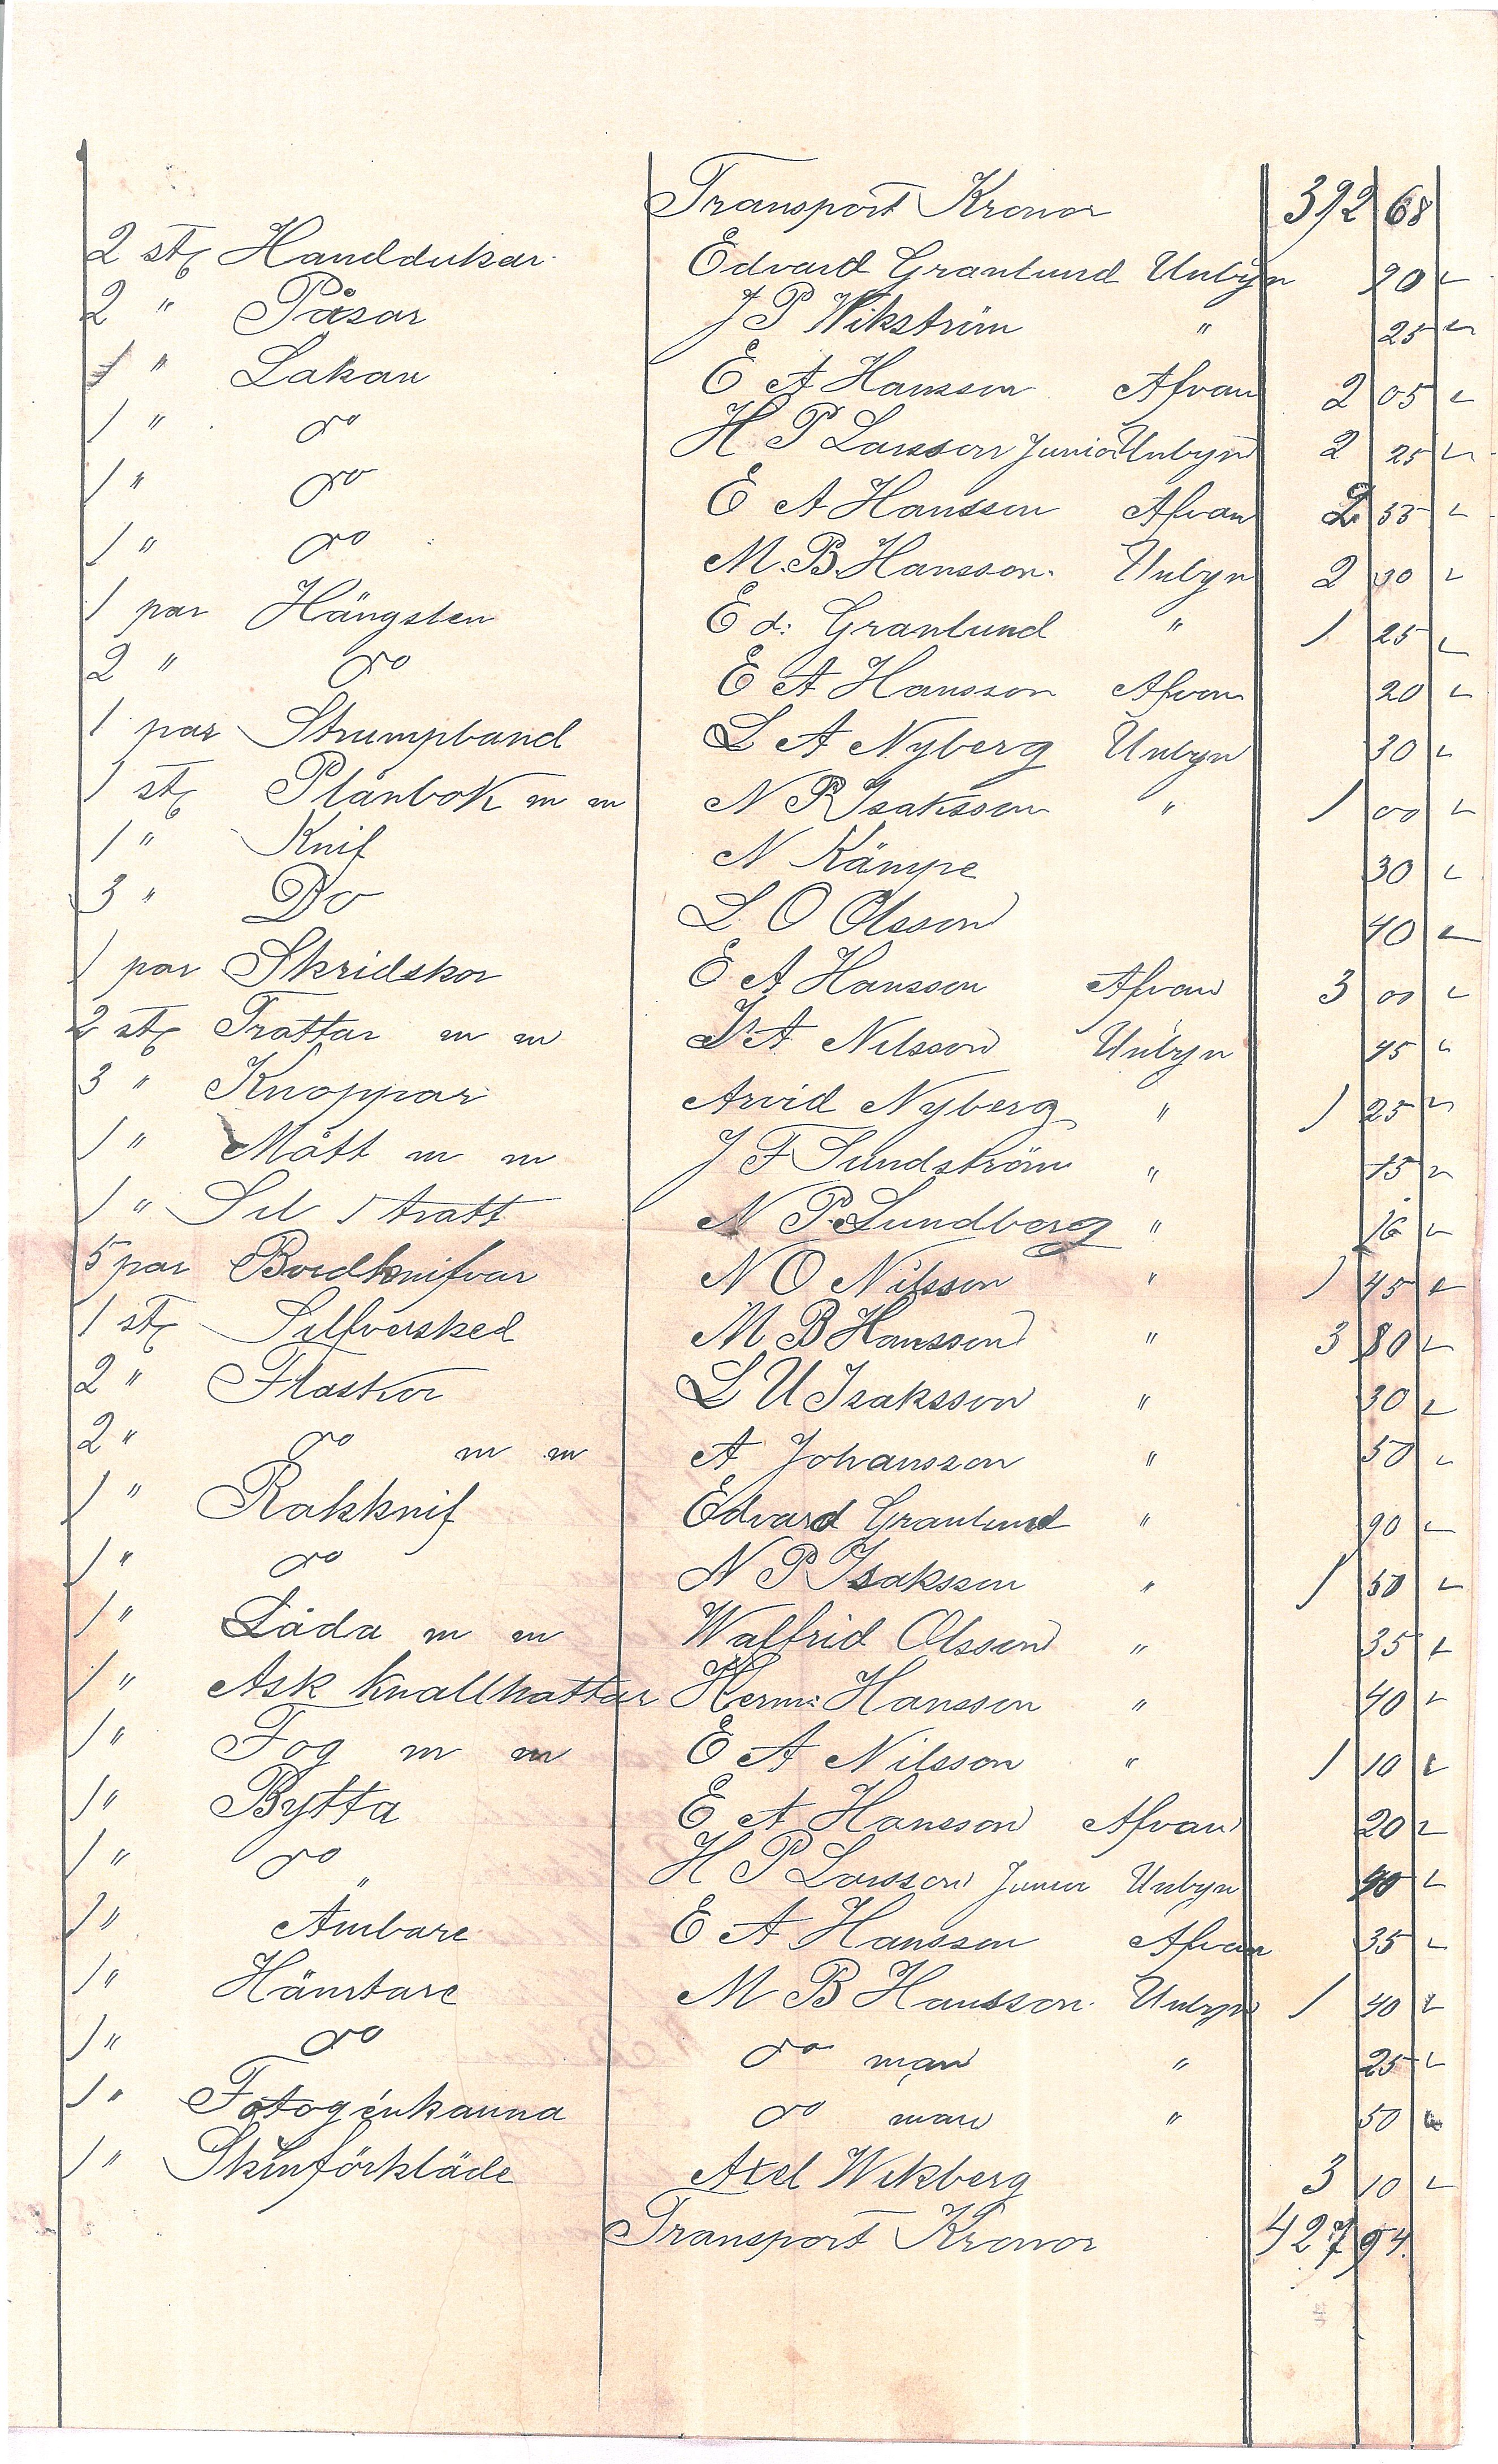 Transport Kronor 392 68
2 st Handdukar Edvard Granlund Unbyn 90
2 " Påsar J P Wikström " 25
1 " Lakan E A Hansson Afvan 2 05
1 " do H P Larsson Junior Unbyn 2 25
1 " do E A Hansson Afvan 2 55
1 " do M. B. Hansson. Unbyn 2 30
1 par Hängslen Ed: Granlund " 1 25
2 " do E A Hansson Afvan 20
1 par Strumpband L A Nyberg Unbyn 30
1 st Plånbok m m N P Isaksson " 1 00
1 " Knif N Kämpe 30
3 " Do L O Olsson 40
1 par Skridskor E A Hansson Afvan 3 00
2 st Trattar m m A Nilsson Unbyn 45
3 " Knoppar Arvid Nyberg " 1 25
1 " Mått m m J F Sundström " 15
1 " Sil 1 tratt N P. Lundberg " 16
5 par Bordknifvar N O Nilsson " 1 45
1 st Silfversked M B Hansson " 3 80
2 " Flaskor L U Isaksson " 30
2 " do m m A Johansson " 50
1 " Rakknif Edvard Granlund " 90
1 " do N P Isaksson " 1 50
1 " Låda m m Walfrid Olsson " 35
1 " Ask knallhattar Herm: Hansson " 40
1 " Fog m m E A Nilsson " 1 10
1 " Bytta E A Hansson Afvan 20
1 " do H P Larsson Junior Unbyn 
1 " Ämbare E A Hansson Afvan 35
1 " Hämtare M B Hansson. Unbyn 1 40
1 " do do man " 25
1 " Fotogénkanna do man " 50
1 " Skinförkläde Axel Wikberg 3 10
Transport Kronor 427 94.